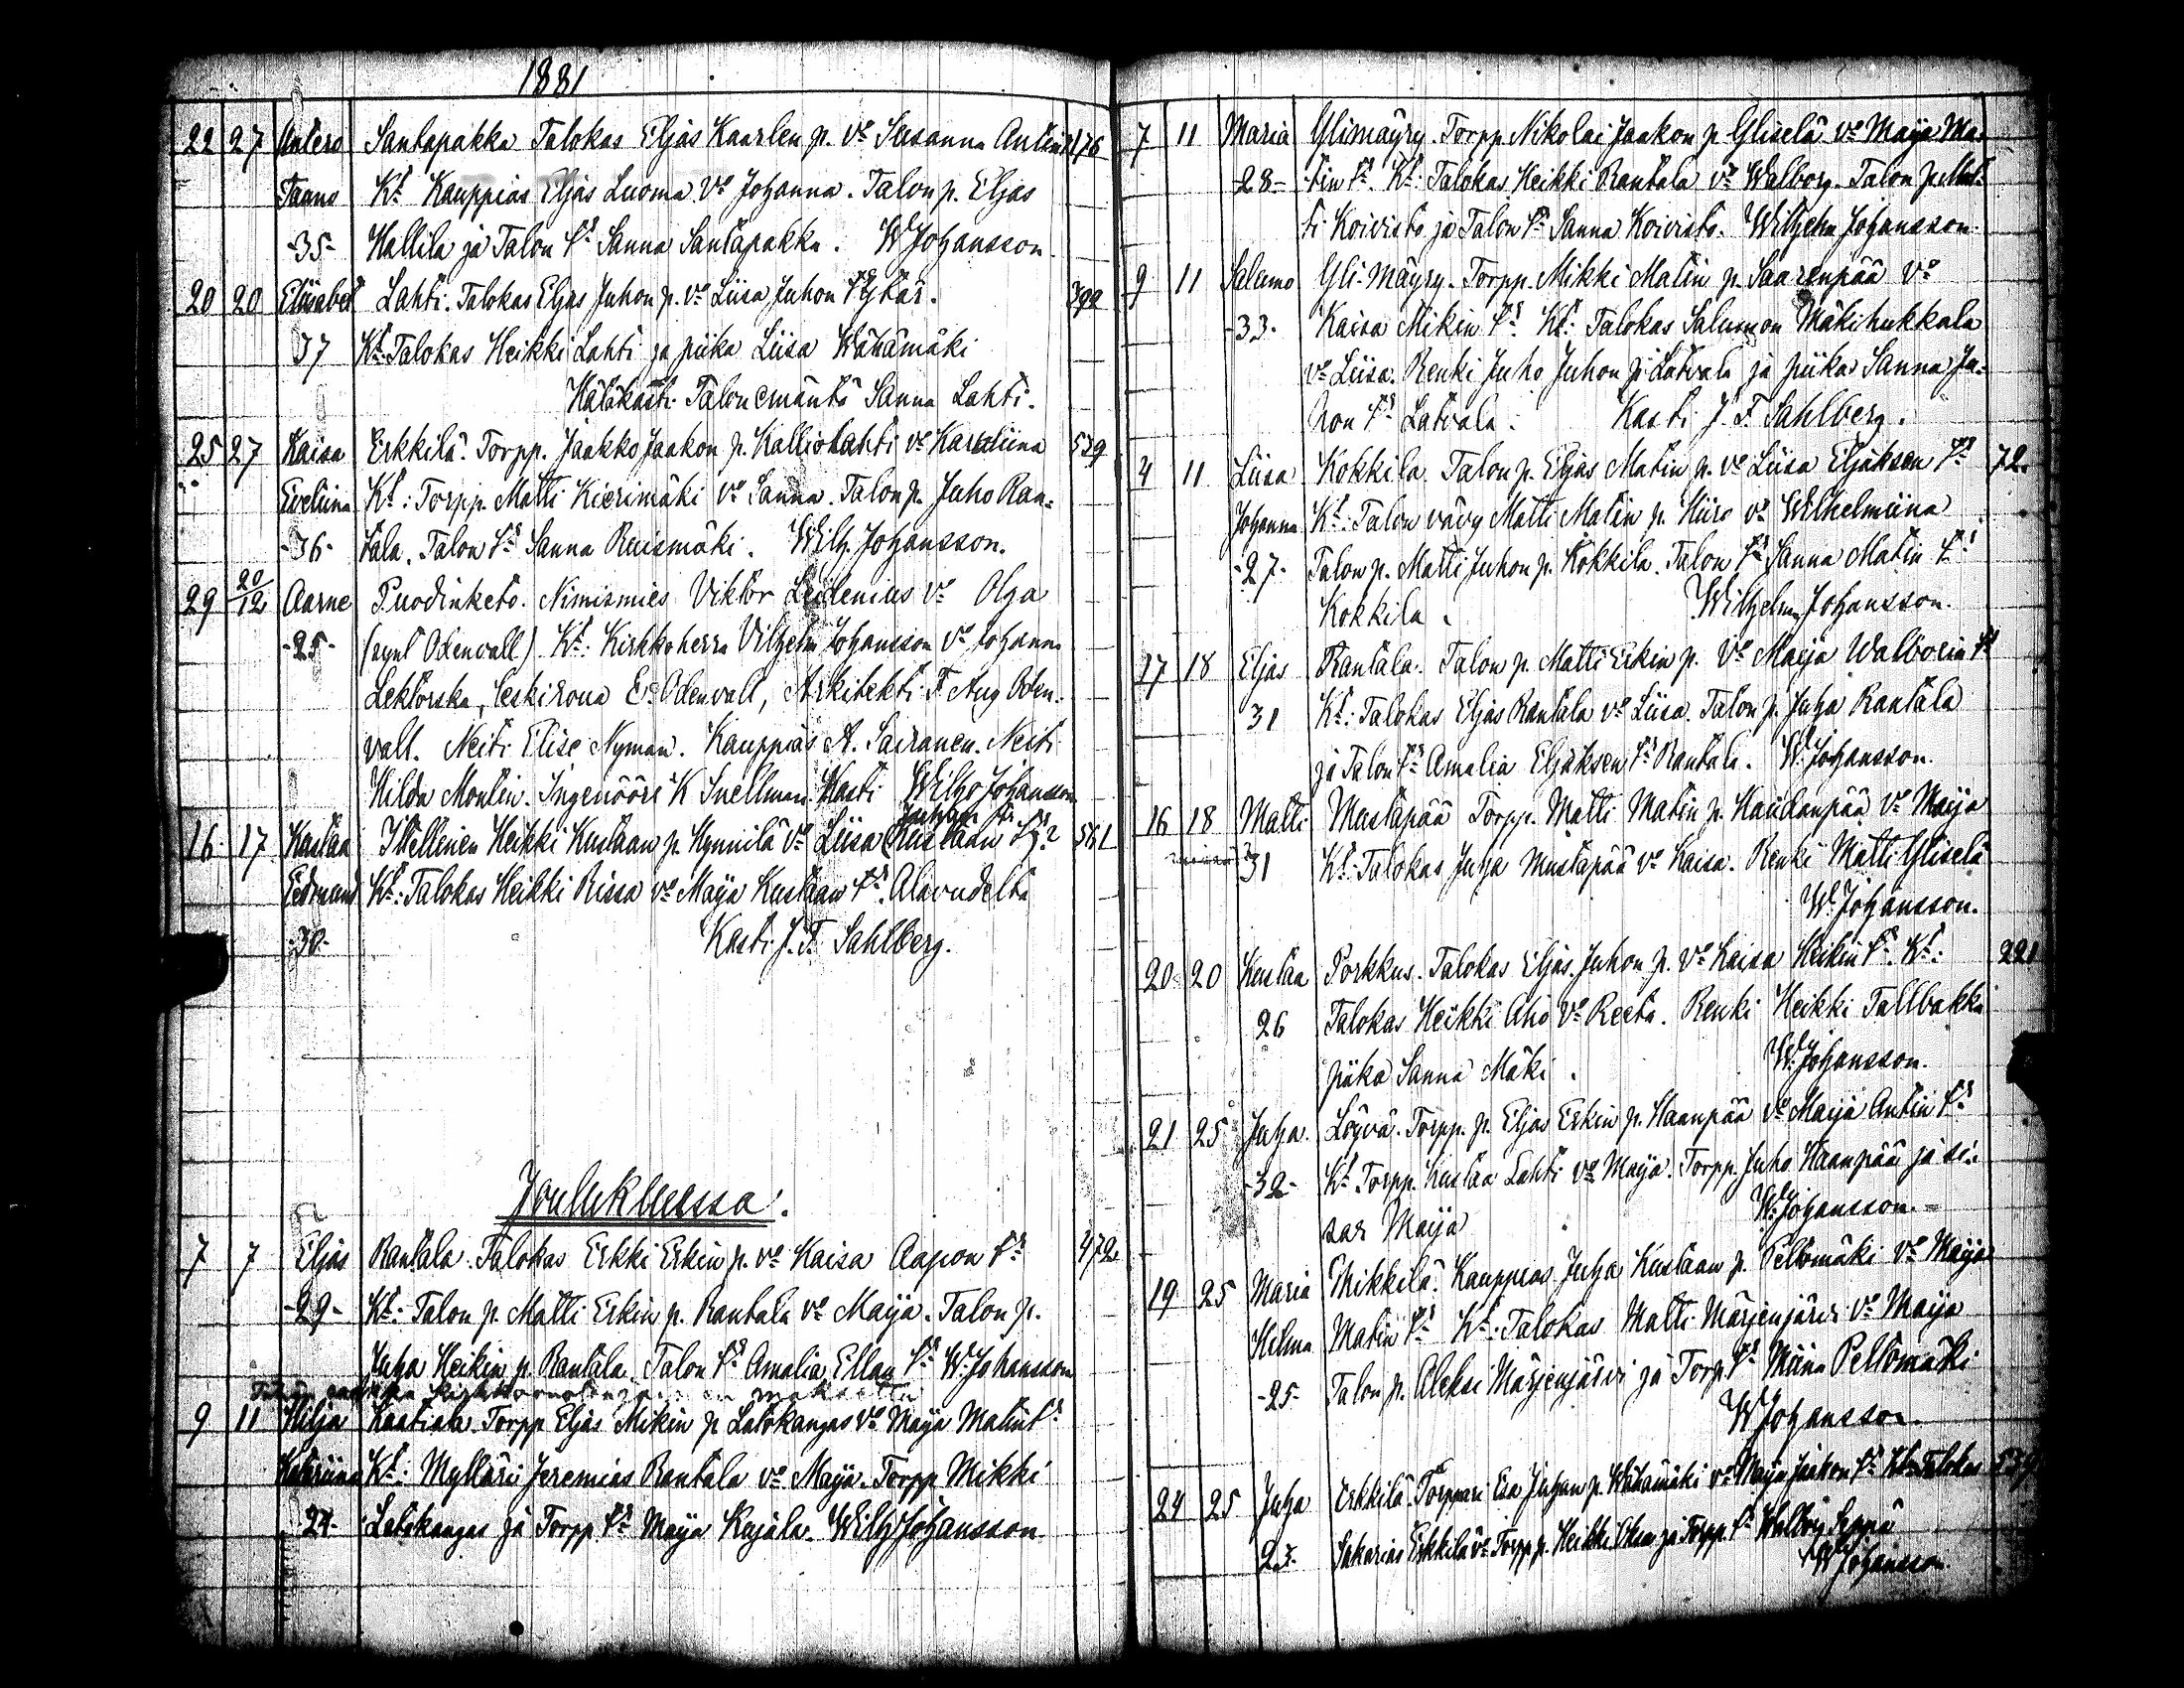 1881
22 27 Antero Santapakka Talokas Eljas Kaarlen p. vo Susanna Antin 176
Taano Kt. Kauppias Eljas Luoma vo Johanna. Talon p. Eljas
-35- Hallila ja Talon tr Sanna Santapakka. W Johansson.
20 20 Eliisabet Lahti. Talokas Eljas Juhon p. vo Liisa Juhon tytär. 392
37 Kt. Talokas Heikki Lahti ja piika Liisa Wähämäki
Hätäkasti Talon emäntä Sanna Lahti.
25 27 Kaisa Erkkilä. Torpp. Jaakko Jaakon p. Kalliolahti vo Karoliina 539
Eveliina Kt: Torpp. Matti Kierimäki vo Sanna. Talon p. Juho Ran=
-36- tala. Talon tr Sanna Ruismäki. Wilh. Johansson.
29 20/12 Aarne Puodinketo. Nimismies Viktor Leidenius vo Olga
-25- (synt Odenvall) Kt: Kirkkoherra Vilhelm Johansson vo Johanna
Lektorska, leskirouva E. Odenvall, Arkitehti F. Aug Oden=
vall. Neiti Elise Nyman. Kauppias A. Sairanen. Neiti
Hilda Montin. Ingenööri K Snellman. Kasti Wilh Johansson
Juhan tr
16 17 Kustaa Itsellinen Heikki Kustaan p. Hynnilä vo Liisa (Kustaan tr? 561
Edmund Kt: Talokas Heikki Rissa vo Maija Kustaan tr. Alavudelta
-30- Kasti J. F. Sahlberg.
Joulukuussa.
7 7 Eljas Rantala. Talokas Erkki Erkin p. vo Kaisa Aapon tr 472
-29- Kt: Talon p. Matti Erkin p. Rantala vo Maija. Talon p.
Juha Heikin p. Rantala. Talon tr Amalia Ellan tr W. Johansson
9 11 Hilja Kaatiala Torpp Eljas Mikin p Latokangas vo Maija Matin tr
Katariina Kt: Mylläri Jeremias Rantala vo Maija. Torpp Mikki
-24- Latokangas ja Torpp tr Maija Rajala. Wilh Johansson
7 11 Maria Ylimäyry. Torpp. Nikolai Jaakon p. Yliselä vo Maija Ma=
-28- tin tr. Kt: Talokas Heikki Rantala vo Walborg. Talon p Mat=
ti Koivisto ja Talon tr Sanna Koivisto. Wilhelm Johansson.
9 11 Salemo Yli-Mäyry. Torpp. Mikki Matin p. Saarenpää vo
-33- Kaisa Mikin tr Kt: Talokas Salumon Mäkihukkala
vo Liisa. Renki Juho Juhon p. Latvala ja piika Sanna Ju=
hon tr Latvala. Kasti J. F. Sahlberg.
4 11 Liisa Kokkila Talon p. Eljas Matin p. vo Liisa Eljaksen tr 72
Johanna Kt: Talon vävy Matti Matin p. Hiiro vo Wilhelmiina
-27- Talon p. Matti Juhon p. Kokkila. Talon tr Sanna Matin tr
Kokkila. Wilhelm Johansson.
17 18 Eljas Rantala. Talon p. Matti Erkin p. vo Maija Walborin tr
31 Kt: Talokas Eljas Rantala vo Liisa. Talon p. Juha Rantala
ja Talon tr Amalia Eljaksen tr Rantala. W. Johansson.
16 18 Matti Mustapää Torpp. Matti Matin p. Haudanpää vo Maija
31 Kt: Talokas Juha Mustapää vo Kaisa. Renki Matti Yliselä
W. Johansson.
20 20 Kustaa Porkkus. Talokas Eljas Juhon p. vo Kaisa Heikin tr. Kt: 221
26 Talokas Heikki Aho vo Reeta. Renki Heikki Tallbakka
piika Sanna Mäki. W. Johansson.
21 25 Juha. Löyvä. Torpp. p. Eljas Erkin p. Haanpää vo Maija Antin tr
-32- Kt Torpp. Kustaa Lahti vo Maija. Torpp. Juho Haanpää ja si=
sar Maija W. Johansson.
19 25 Maria Mikkilä. Kauppias Juha Kustaan p. Peltomäki vo Maija
Helma Matin tr Kt: Talokas Matti Märjenjärvi vo Maija
-25- Talon p. Aleksi Märjenjärvi ja Torp. tr Miina Peltomäki
W Johansson.
24 25 Juha Erkkilä. Torppari Esa Juhan p. Wähämäki vo Maija Jaakon tr Kt: Talokas 539
23- Sakarias Erkkilä vo Torpp p. Heikki ja Torpp. tr Walborg Seppä
W Johansson.